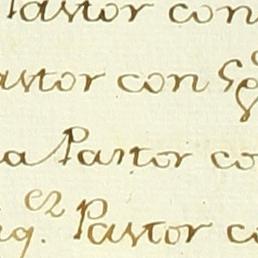 Pastor con
astor con
a Pastor co
ez Pastor co